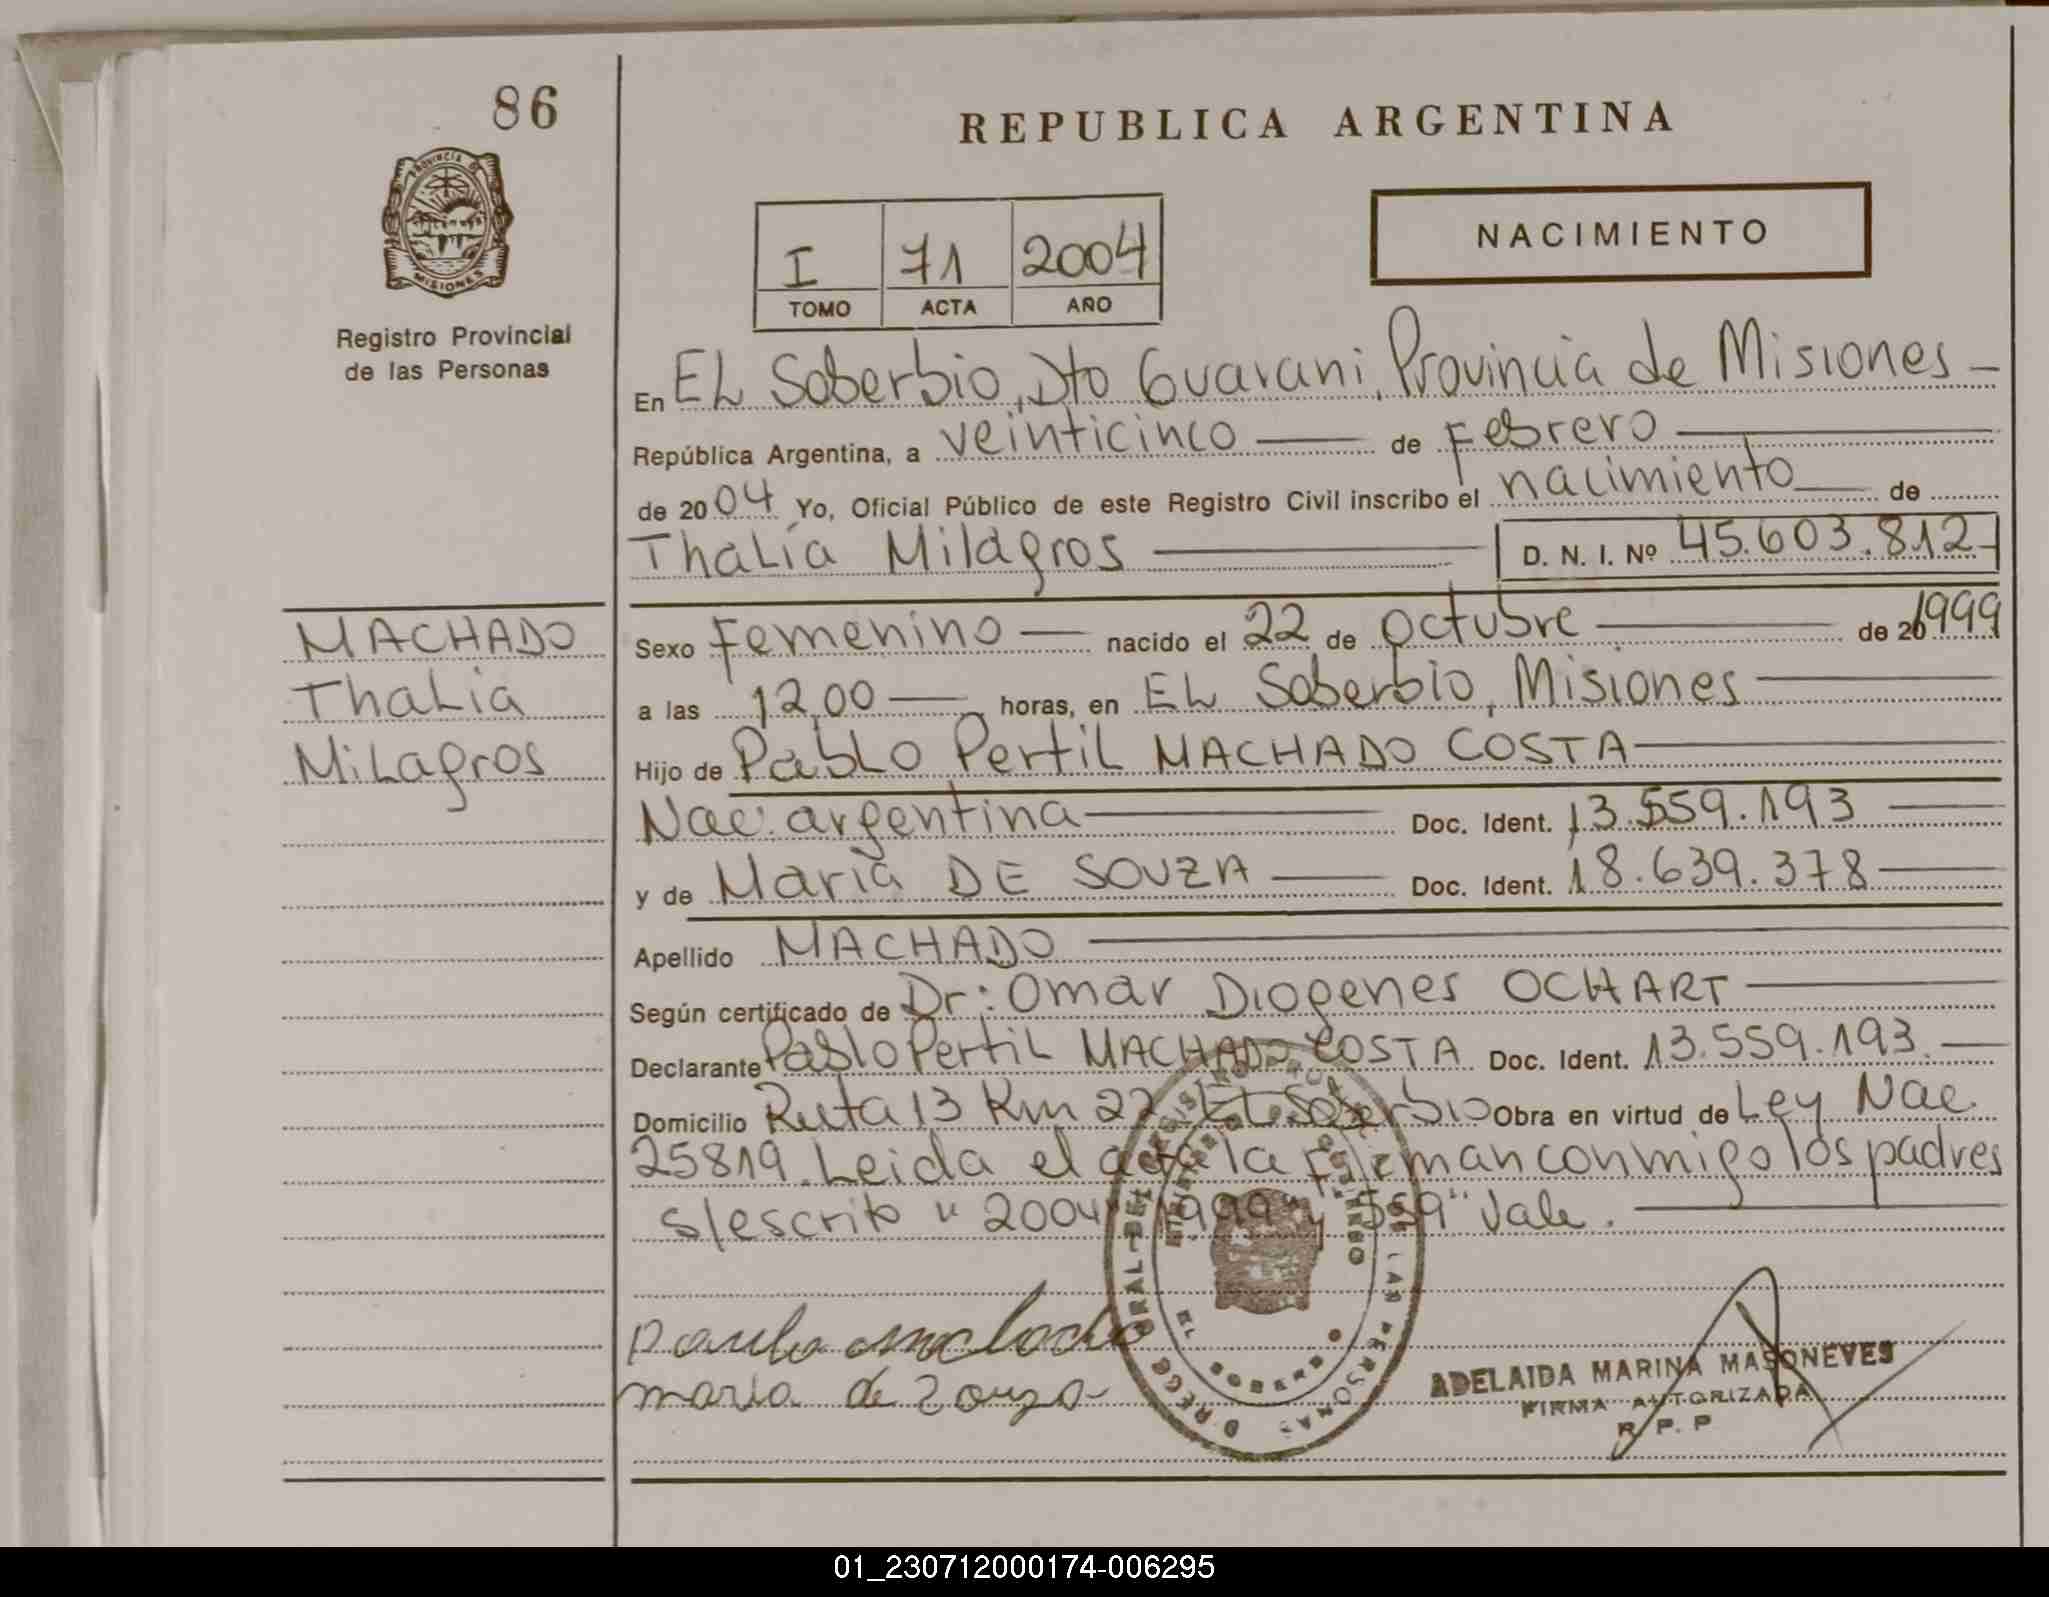 86
REPUBLICA ARGENTINA
PROVINCIA DE MISIONES
Registro Provincial
de las Personas
I 71 2004
TOMO ACTA AÑO
NACIMIENTO
En EL Soberbio, Dto Guarani, Provincia de Misiones
República Argentina, a veinticinco de Febrero
de 2004 Yo, Oficial Público de este Registro Civil inscribo el nacimiento de
Thalía Milagros D. N. I. Nº 45.603.812
MACHADO
Thalia
Milagros
Sexo Femenino nacido el 22 de octubre de 20 1999
a las 12,00 horas, en EL Soberbio, Misiones
Hijo de Pablo Pertil MACHADO COSTA
Nac. argentina Doc. Ident. 13.559.193
y de Maria DE SOUZA Doc. Ident. 18.639.378
Apellido MACHADO
Según certificado de Dr: Omar Diogenes OCHART
Declarante Pablo Pertil MACHADO COSTA Doc. Ident. 13.559.193
Domicilio Ruta 13 Km 22 EL Soberbio Obra en virtud de Ley Nac
25819. Leida el acta la firman conmigo los padres
s/escrito " 2004" "1999" y "559" Vale.
maria de Souza
ADELAIDA MARINA MASONEVES
FIRMA AUTORIZADA
R. P. P
01_230712000174-006295